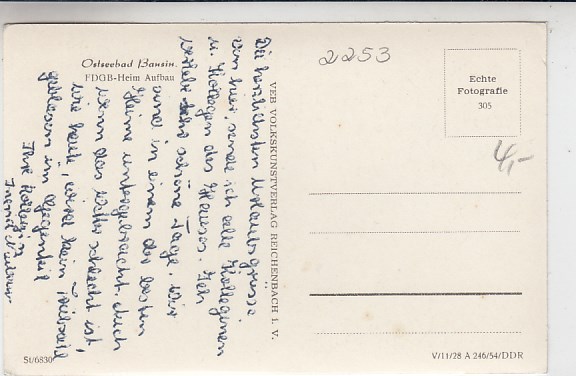 Ostseebad Bansin.
FDGB-Heim Aufbau
Die herzlichsten Urlaubsgrüsse
von hier, sende ich alle Kolleginen
u. Kollegen des Hauses. Ich
verlebe sehr schöne Tage. Wir
sind in einem der besten
Heime untergebracht. Auch
wenn das Wetter schlecht ist,
wie heute, wird kein
geblasen im Gegenteil
Ihre Kollegin
VEB VOLKSKUNSTVERLAG REICHENBACH I. V.
2253
Echte
Fotografie
305
4,-
St/6830
V/11/28 A 246/54/DDR